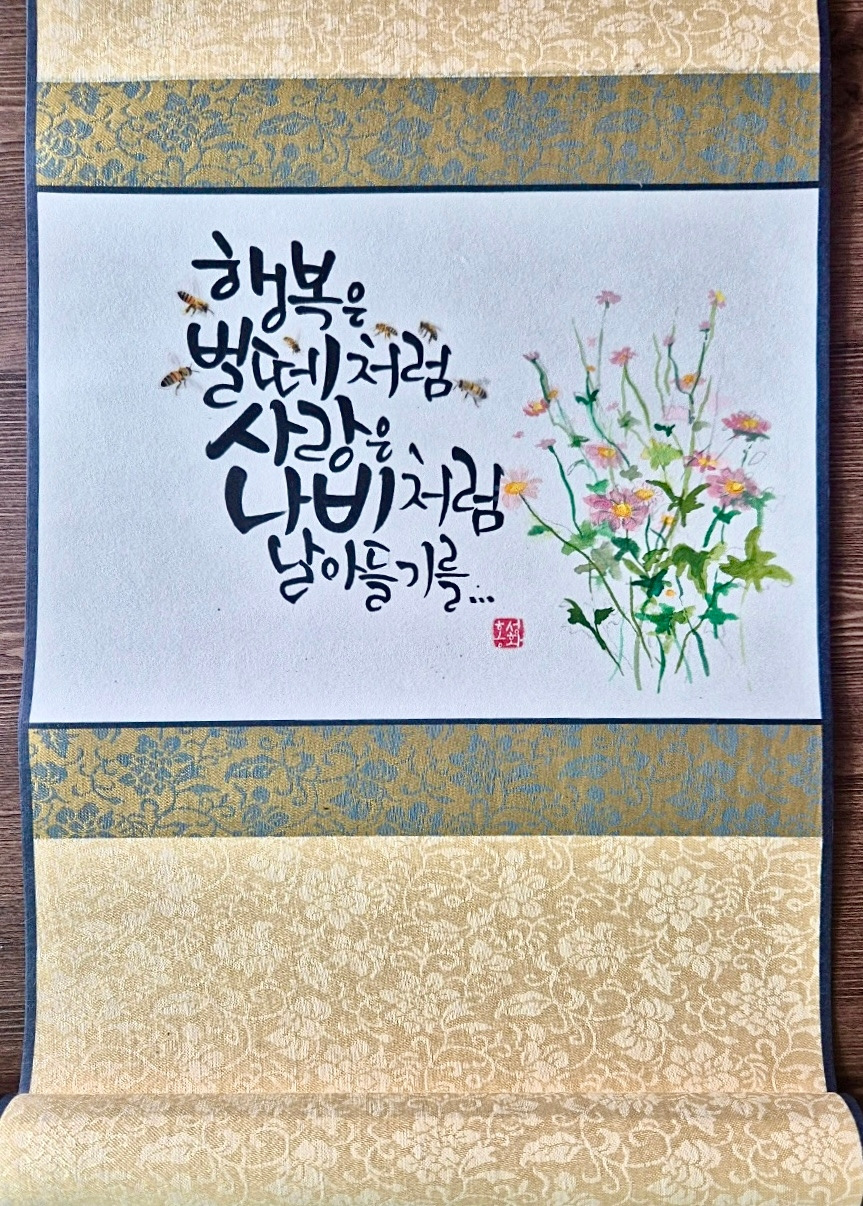 행복은
벌떼처럼
사랑은
나비처럼
날아들기를...